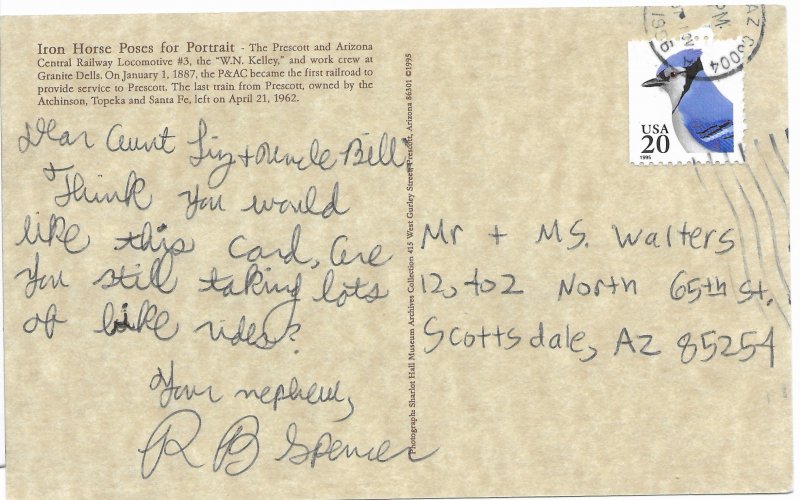 Iron Horse Poses for Portrait - The Prescott and Arizona
Central Railway Locomotive #3, the "W.N. Kelley," and work crew at
Granite Dells. On January 1, 1887, the P&AC became the first railroad to
provide service to Prescott. The last train from Prescott, owned by the
Atchinson, Topeka and Santa Fe, left on April 21, 1962.
Dear Aunt Liz + Uncle Bill,
I Think You would
like this Card, are
You still taking lots
of bike rides?
Your nephew,
R B Spencer
Photographs Sharlot Hall Museum Archives Collection 415 West Gurley Street Prescott, Arizona 86301 ©1995
AZ
PM
1996
USA
20
1995
Mr + MS. Walters
12,402 North 65th St.
Scottsdale, AZ 85254